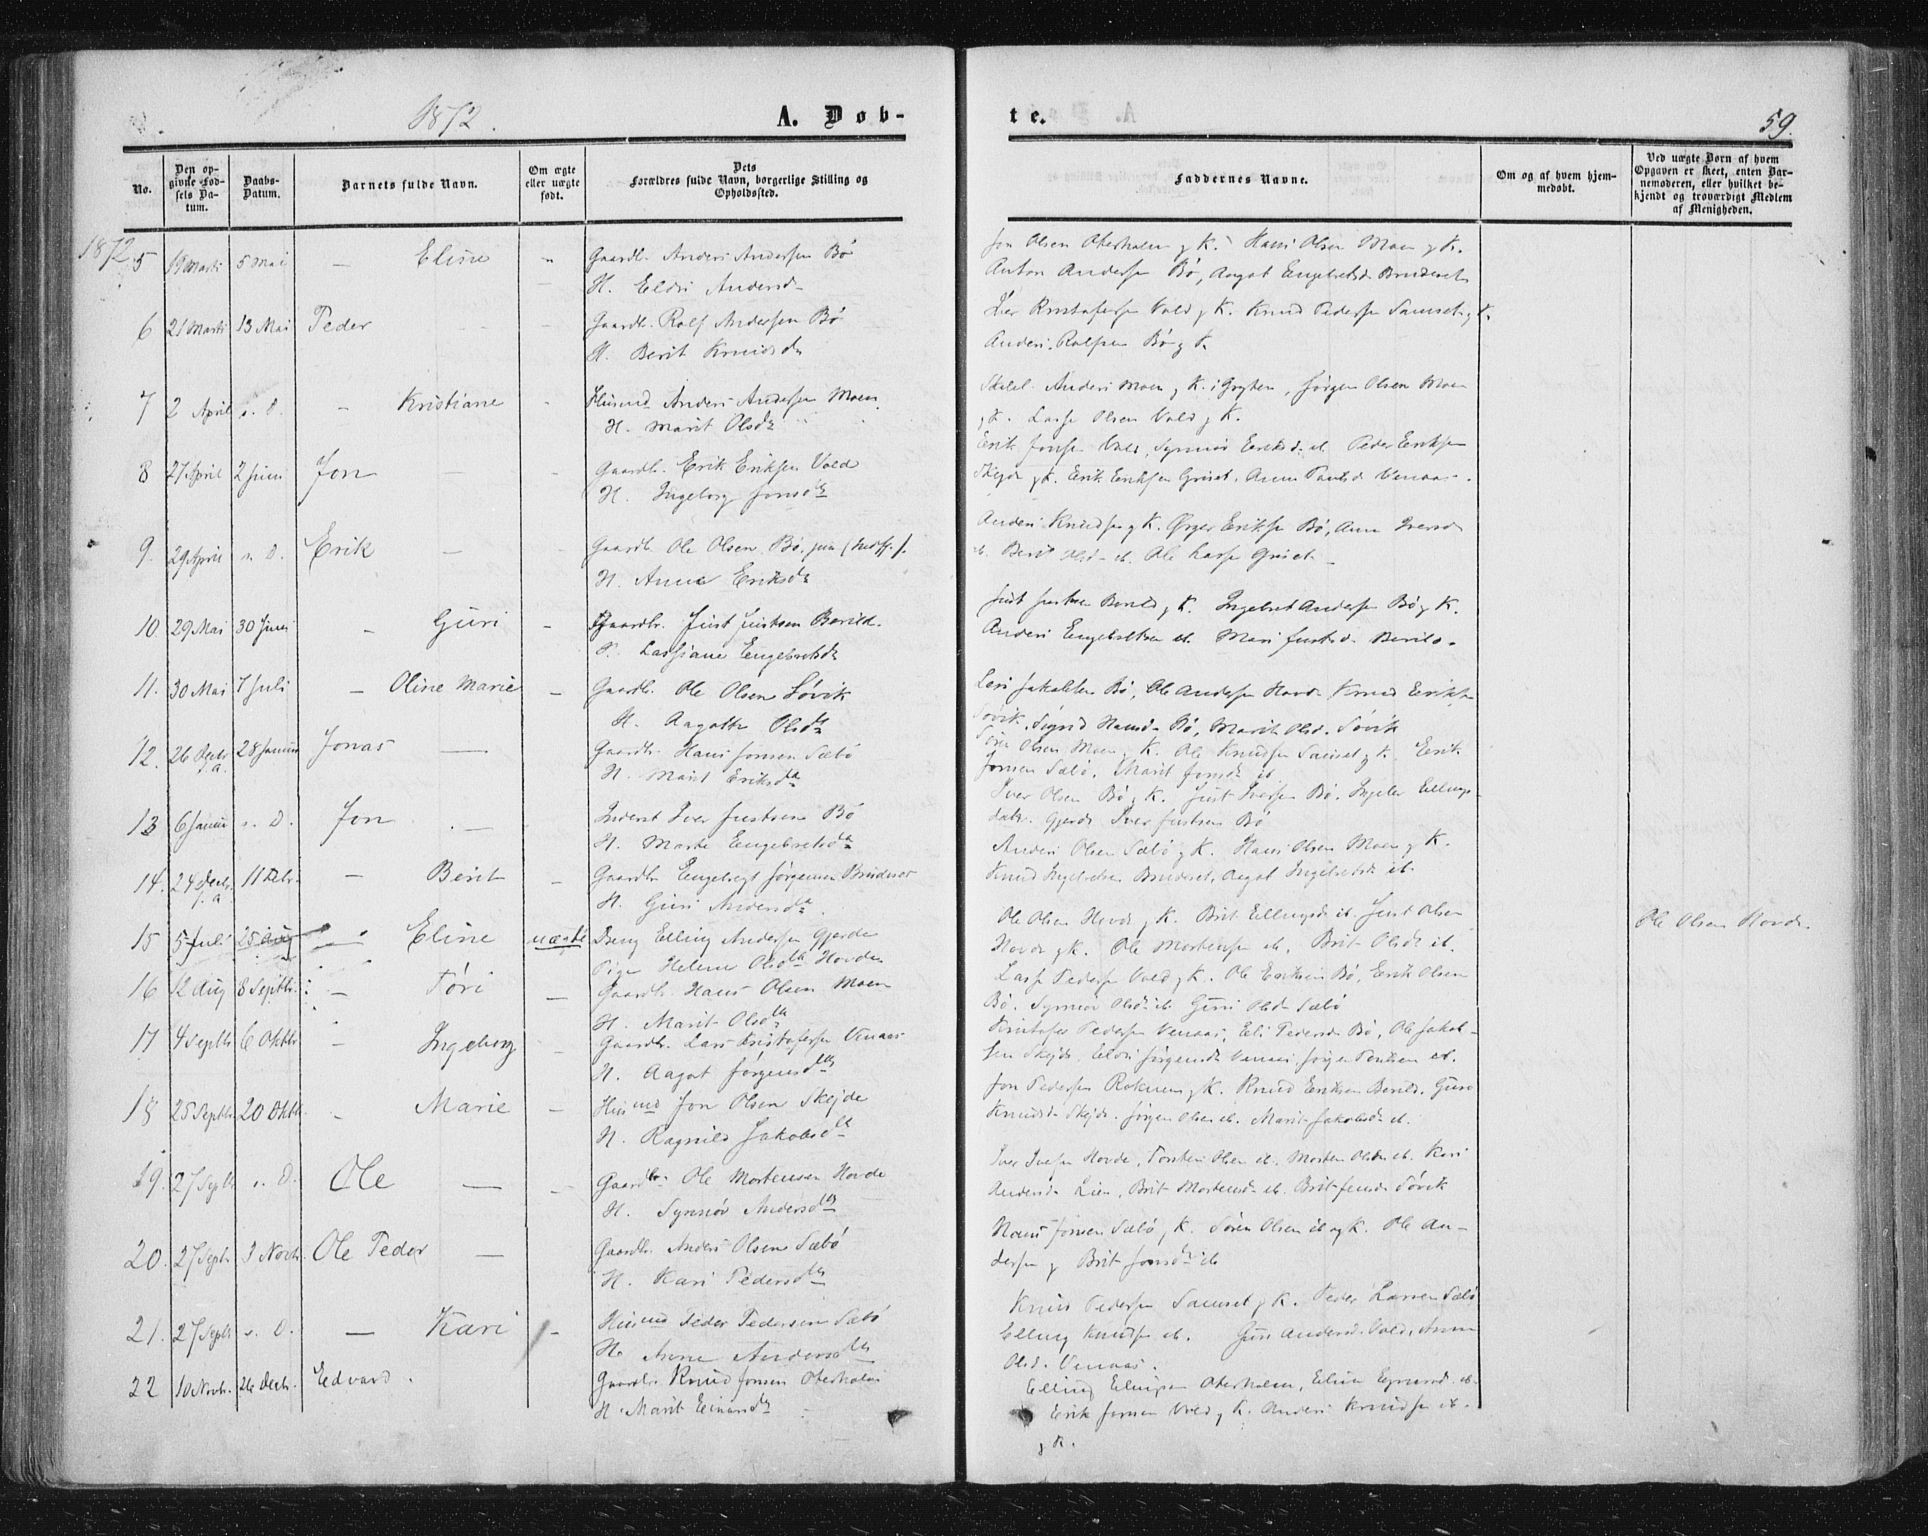 1872.
A. Døb-
te.
59.
No.
Den op-
givne Fød-
sels Da-
tum.
Daabs-
Datum.
Barnets fulde Navn.
Om ægte
eller uægte
født.
Dets
Forældres fulde Navn, borgerlige Stilling og
Opholdssted.
Faddernes Navne.
Om og af hvem hjem-
medøbt.
Ved uægte Børn af hvem
Opgaven er skeet, enten Bar-
nemoderen, eller hvilket be-
kjendt og troværdigt Medlem
af Menigheden.
1872
5 19 Marti 5 Mai — Eline
Gaardb. Anders Andersen Bø
H. Eldri Andersd.
Jon Olsen Oterhalm g K. Hans Olsen Moen g K.
Anton Andersen Bø, Aagot Engebretsd. Bruderset
6 21 Marti 13 Mai Peder
Gaardb. Rolf Andersen Bø
H. Berit Knudsdr
Iver Kristofersen Vold g K. Knud Pedersen Samset g K.
Anders Rolfsen Bø g K.
7 2 April s. D. — Kristiane
Husmd Anders Andersen Moen
H. Marit Olsdr
Anders Moen g K. i Grytten, Jørgen Olsen Moen
g K. Lasse Olsen Vold g K.
8 27 April 2 Juni Jon —
Gaardb. Erik Eriksen Vold
H. Ingeborg Jonsdr
Erik Jonsen Vold, Synnøv Eriksd. ib. Peder Eriksen
Skejde g K. Erik Eriksen Griset. Anne Paulsd. Venaas.
9. 29 April s. D. Erik —
Gaardb. Ole Olsen Bø jun
H. Anne Eriksdr
Anders Knudsen g K. Ørger Eriksen Bø, Anne Iversd
ib. Berit Olsd. ib. Ole Larsen Griset
10 29 Mai 30 Juni — Guri —
Gaardbr. Just Justsen Berild.
H. Lassiane Engebretsdr
Just Justsen Berild g K. Ingebret Andersen Bø g K.
Anders Engebretsen ib. Mari Justsd. Berild.
11. 30 Mai 7 Juli — Oline Marie —
Gaardb. Ole Olsen Søvik
H. Aagathe Olsdr
Lars Jakobsen Bø, Ole Andersen Hovde, Knud Eriksen
Søvik, Sigrid Hansd. Bø, Marit Olsd. Søvik
12. 26 Decbr. f. a. 28 Januar Jonas —
Gaardbr. Hans Jonsen Sæbø
H. Marit Eriksdr
Søren Olsen Moen g K. Ole Knudsen Samset g K. Erik
Jonsen Sæbø. Marit Jonsd. ib.
13 6 Januar s. D. Jon —
Inderst Iver Justsen Bø
H. Marte Engebretsdr
Iver Olsen Bø g K. Just Iversen Bø. Ingeber Ellings-
datr. Gjerde Iver Justsen Bø
14. 24 Decbr. f. a 11 Febr. — Berit —
Gaardbr Engebregt Jørgensen Bruderset
H. Guri Andersdr.
Anders Olsen Sæbø g K. Hans Olsen Moen g K.
Knud Ingebretsen Bruderset, Aagot Ingebretsd. ib.
15 5 Juli 25 Aug — Eline uægte
Dreng Elling Andersen Gjerde
Pige Helene Olsdtr Hovde
Ole Olsen Hovde g K. Brit Ellingsd. ib. Just Olsen
Hovde g K. Ole Mortensen ib. Brit Olsd. ib.
Ole Olsen Hovde.
16 12 Aug 8 Septbr. — Tøri —
Gaardbr. Hans Olsen Moen
H. Marit Olsdtr
Lasse Pedersen Vold g K. Ole Eriksen Bø, Erik Olsen
Bø. Synnøv Olsd. ib. Guri Olsd. Sæbø
17 4 Septbr 6 Oktbr — Ingeborg —
Gaardbr. Lars Kristofersen Venaas
H. Aagot Jørgensdtr
Kristofer Pedersen Venaas, Eli Pedersd. Bø, Ole Jakob-
sen Skejde, Eldri Jørgensd. Venaas, ib.
18 25 Septbr 20 Oktb. — Marie —
Husmd Jon Olsen Skejde
H. Ragnild Jakobsdt
Jon Pedersen Roknem g K. Knud Eriksen Berild. Guro
Knudsd. Skejde. Jørgen Olsen ib. Marit Jakobsd. ib.
19. 27 Septbr s. D. Ole — —
Gaardbr. Ole Mortensen Hovde
H. Synnøv Andersdtr
Iver Iversen Hovde, Torsten Olsen ib. Morten Olsen ib. Kari
Andersd. Lien, Brit Mortensd. ib. Brit Jonsd. Søvik
20. 27 Septr. 3 Novbr. Ole Peder —
Gaardbr. Anders Olsen Sæbø
H. Kari Pedersdtr
Hans Jonsen Sæbø g K. Søren Olsen ib g K. Ole An-
dersen g Brit Jonsdtr ib
21. 27 Septbr s. D. — Kari —
Husmd Peder Pedersen Sæbø
H. Anne Andersdtr
Knud Pedersen Samset g K. Peder Larsen Sæbø
Elling Knudsen ib. Guri Andersd. Vold, Anne
Olsd. Venaas.
22 10 Novbr. 26 Decbr. Edvard.
Gaardbr Knud Jonsen Oterhalm
H. Marit Einarsdr
Elling Ellingsen Oterhalm, ib.
Erik Jonsen Vold g K. Anders Knudsen ib.
g K.